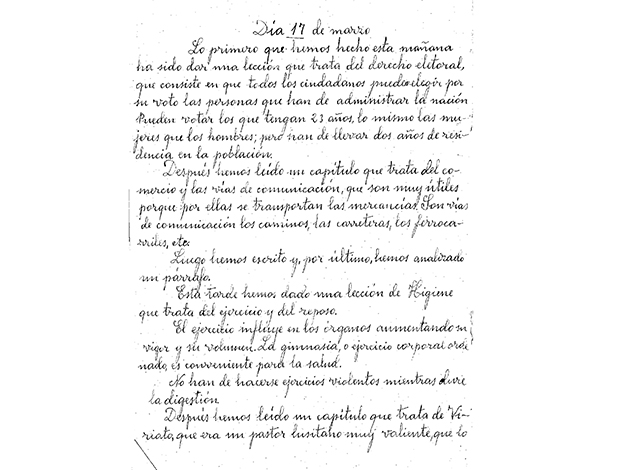 Día 17 de marzo
Lo primero que hemos hecho esta mañana
ha sido dar una lección que trata del derecho eletoral,
que consiste en que todos los ciudadanos puede elegir por
su voto las personas que han de administrar la nación
Pueden votar los que tengan 23 años, lo mismo las mu-
jeres que los hombres; pero han de llevar dos años de resi-
dencia en la población.
Después hemos leído un capítulo que trata del co-
mercio y las vías de comunicación, que son muy útiles
porque por ellas se transportan las mercancías. Son vías
de comunicación los caminos, las carreteras, los ferroca-
rriles, etc.
Luego hemos escrito y, por último, hemos analizado
un párrafo.
Esta tarde hemos dado una lección de Higiene
que trata del ejercicio y del reposo.
El ejercicio influye en los órganos aumentando su
vigor y su volumen. La gimnasia, o ejercicio corporal orde
nado, es conveniente para la salud.
No han de hacerse ejercicios violentos mientras dure
la digestión.
Después hemos leído un capítulo que trata de Vi-
riato, que era un pastor lusitano muy valiente, que lo